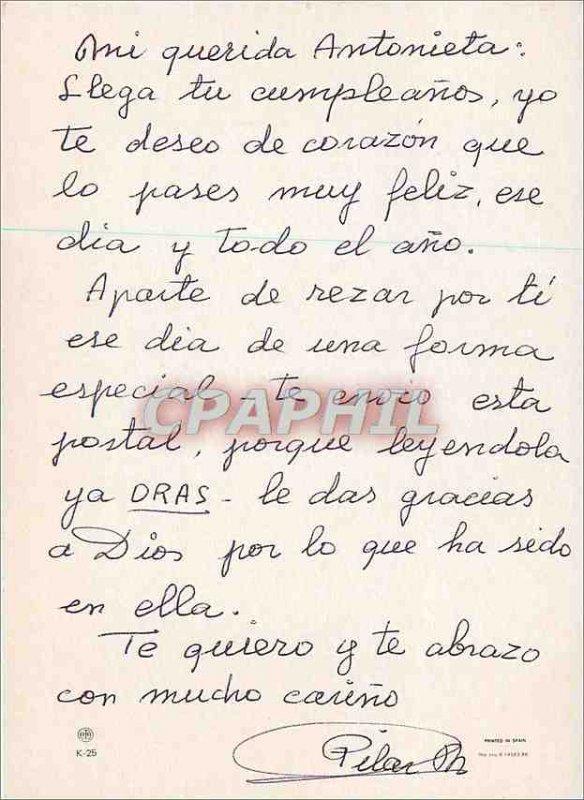 Mi querida Antonieta:
Llega tu cumpleaños, yo
te deseo de corazón que
lo pases muy feliz, ese
dia y todo el año.
Aparte de rezar por tí
ese dia de una forma
especial - te envio esta
postal, porque leyendola
ya ORAS - le das gracias
a Dios por lo que ha sido
en ella.
Te quiero y te abrazo
con mucho cariño
Pilar
CPAPHIL
K-25
PRINTED IN SPAIN